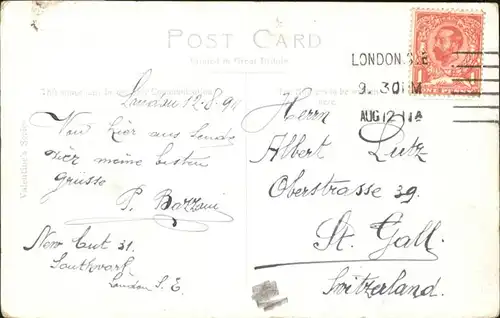 POST CARD
LONDON. S.E
9. 30 PM
AUG 12 11A
Valentine's Series
London 12.8.911
Von hier aus sende
meine besten
Grüsse
P. Bazzani
New Cut 31.
Southwark
London S. E.
Herrn
Albert Lutz
Oberstrasse 39.
St. Gall.
Switzerland.